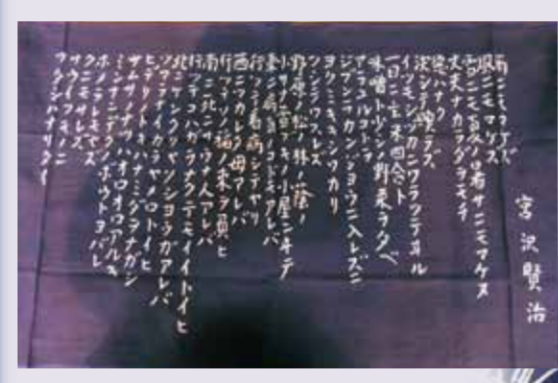 宮沢賢治
雨ニモマケズ
風ニモマケズ
雪ニモ夏ノ暑サニモマケヌ
丈夫ナカラダヲモチ
慾ハナク
決シテ瞋ラズ
イツモシヅカニワラッテヰル
一日ニ玄米四合ト
味噌ト少シノ野菜ヲタベ
アラユルコトヲ
ジブンヲカンジョウニ入レズニ
ヨクミキキシワカリ
ソシテワスレズ
野原ノ松ノ林ノ蔭ノ
小サナ萱ブキノ小屋ニヰテ
東ニ病気ノコドモアレバ
行ッテ看病シテヤリ
西ニツカレタ母アレバ
行ッテソノ稲ノ束ヲ負ヒ
南ニ死ニサウナ人アレバ
行ッテコハガラナクテモイイトイヒ
北ニケンクヮヤソショウガアレバ
ツマラナイカラヤメロトイヒ
ヒデリノトキハナミダヲナガシ
サムサノナツハオロオロアルキ
ミンナニデクノボウトヨバレ
ホメラレモセズ
クニモサレズ
サウイフモノニ
ワタシハナリタイ